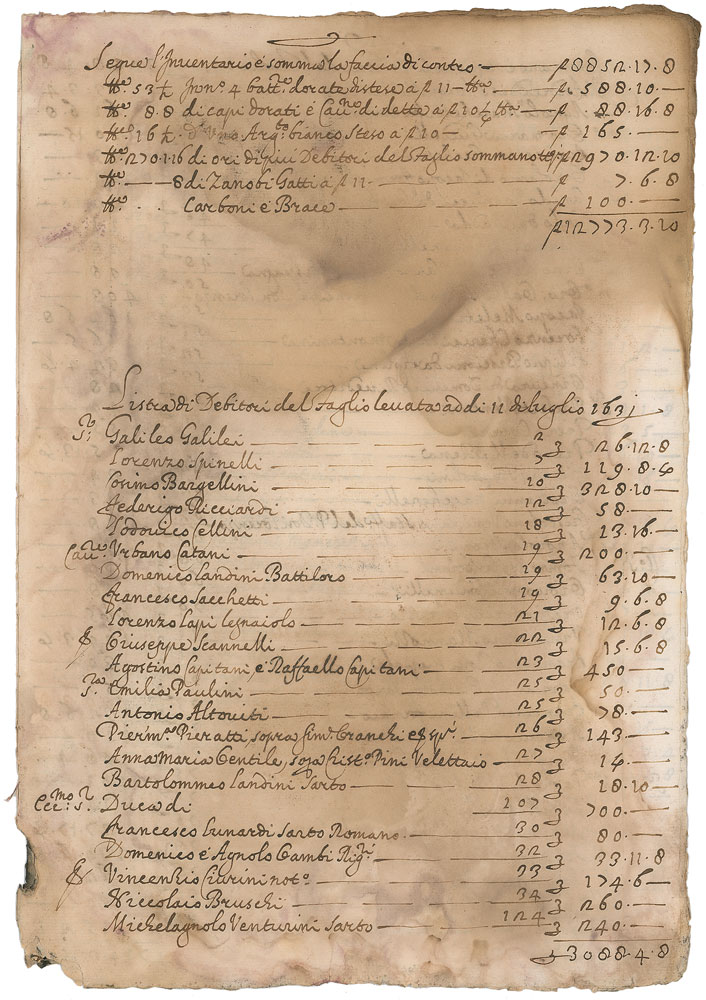 Segue l'Inventario e somma la faccia di contro — ƒ 8852.17.8
tt.e 53 ½ Inn.o 4 batt.e dorate distese a ƒ 11 — tt.e — ƒ 588.10 —
tt.e 8.8 di capi dorati e Cau.no di dette a ƒ 10 ½ tt.e — ƒ 88.16.8
tt.e 16 ½ d'Uno Arg.to bianco steso a ƒ 10 — ƒ 165. —
tt.e 270.1.16 di ori di piu Debitori del Taglio sommano ƒ 2970.12.10
tt.e — 8 di Zanobi Gatti a ƒ 11 — ƒ 7.6.8
tt.e . . Carboni e Brace — ƒ 100 —
ƒ 12773.3.10
Listra di Debitori del Taglio levata addi 11 di luglio 1631
S.r Galileo Galilei — 2 — 26.12.8
Lorenzo Spinelli — 5 — 119.8.4
Cosimo Bargellini — 10 — 328.10 —
Federigo Ricciardi — 12 — 58 —
Lodovico Cellini — 18 — 13.16 —
Cau.re Urbano Catani — 19 — 200 —
Domenico Landini Battiloro — 19 — 63.10 —
Francesco Sacchetti — 19 — 9.6.8
Lorenzo Lapi Legnaiolo — 21 — 12.6.8
Giuseppe Scannelli — 22 — 15.6.8
Agostino Capitani, e Raffaello Capitani — 23 — 450 —
S.ra Emilia Paulini — 25 — 50 —
Antonio Altoviti — 25 — 78 —
Pierim.o Pieratti, sopra Sim.e Cranchi — 26 — 143 —
Anna Maria Gentile, sopra Crist.o Pini Velettaio — 27 — 14 —
Bartolommeo Landini Sarto — 28 — 18.10 —
Ecc.mo S.r Duca di — 107 — 700 —
Francesco Lunardi Sarto Romano — 30 — 80 —
Domenico e Agnolo Gambi Rig.ri — 32 — 33.11.8
Vincenzio Ciurini not.o — 33 — 174.6 —
Niccolaio Bruschi — 34 — 260 —
Michelagnolo Venturini Sarto — 124 — 240 —
3088.4.8